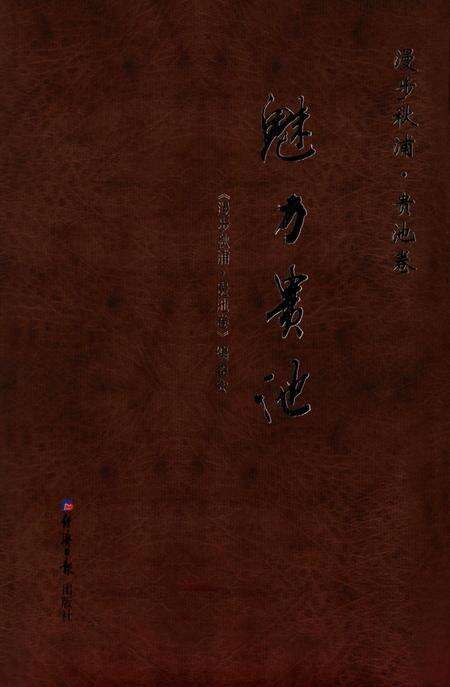 漫步秋浦·贵池卷
魅力貴池
《漫步秋浦·贵池卷》编委会
经济日报出版社